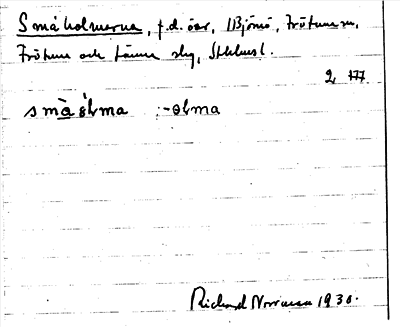 Småholmerna, f.d. öar, Björnö, Frötuna sn,
Frötuna och Länna slg, Sthlms l.
2 777
småålma :-ɵlma
Richard Norman 1930.